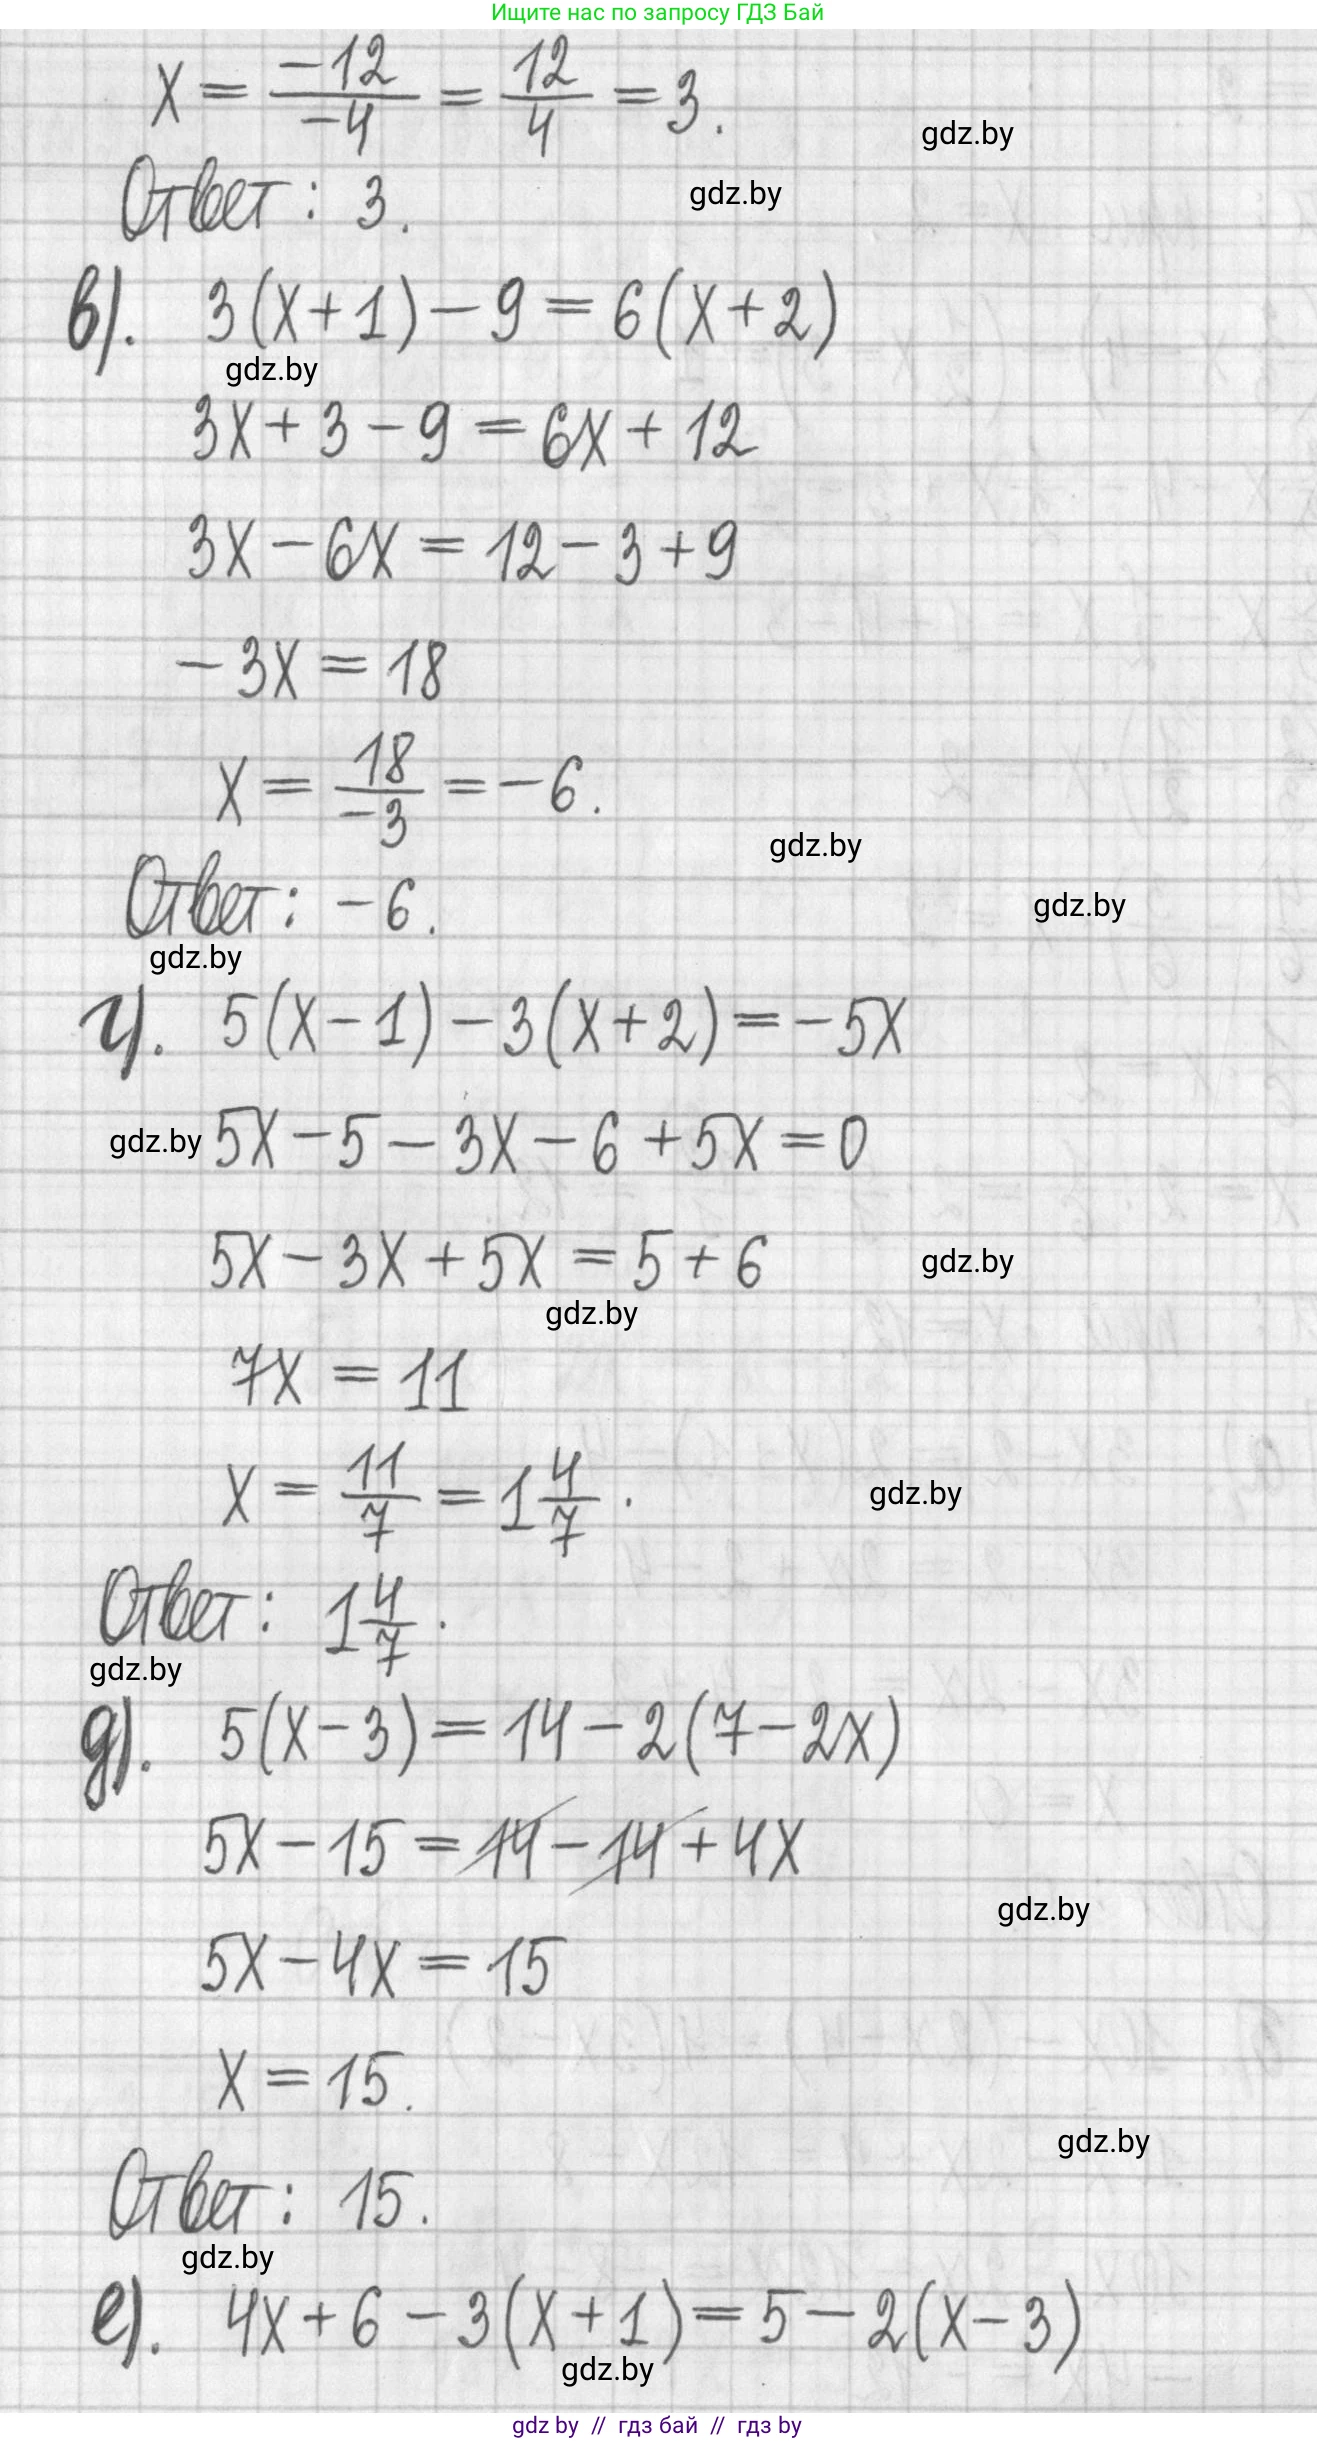 Ищите нас по запросу ГДЗ Бай
x = -12/-4 = 12/4 = 3.
gdz.by
Ответ: 3.
gdz.by
в). 3(x+1)-9=6(x+2)
gdz.by
3x+3-9=6x+12
3x-6x=12-3+9
-3x=18
x = 18/-3 = -6.
gdz.by
Ответ: -6.
gdz.by
gdz.by
г). 5(x-1)-3(x+2)=-5x
gdz.by
5x-5-3x-6+5x=0
5x-3x+5x=5+6
gdz.by
gdz.by
7x=11
x = 11/7 = 1 4/7.
gdz.by
Ответ: 1 4/7.
gdz.by
д). 5(x-3)=14-2(7-2x)
5x-15=14-14+4x
gdz.by
5x-4x=15
x=15.
gdz.by
Ответ: 15.
gdz.by
е). 4x+6-3(x+1)=5-2(x-3)
gdz.by
gdz by // гдз бай // гдз by